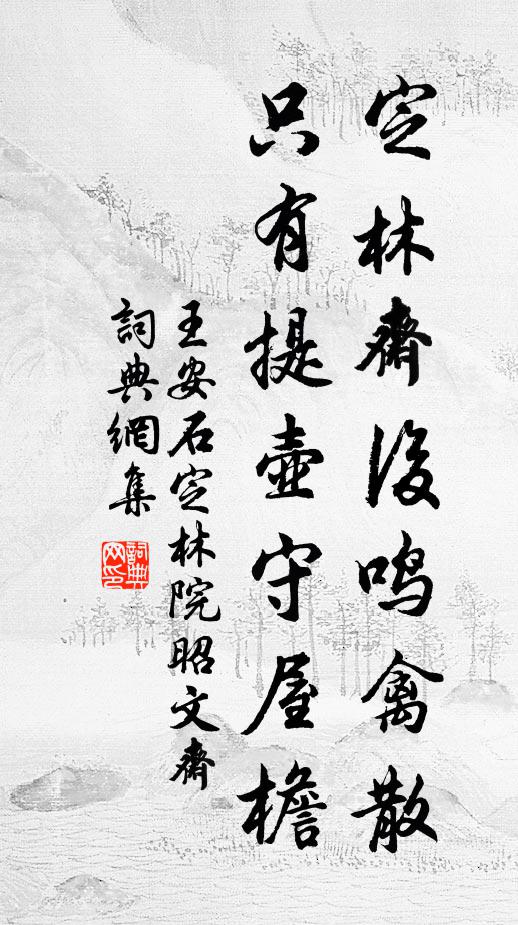 定林齋後鳴禽散
只有提壺守屋檐
王安石定林院昭文齋
詞典網集
詞典網印